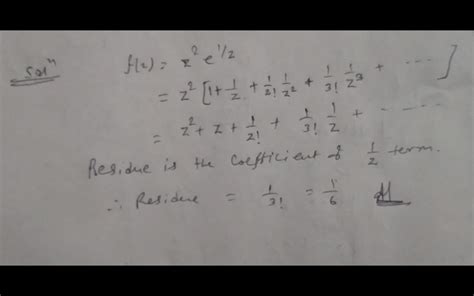 Solⁿ f(z) = z² e^{1/z}
= z² [1 + 1/z + 1/2! 1/z² + 1/3! 1/z³ + ----]
= z² + z + 1/2! + 1/3! 1/z + -----
Residue is the Coefficient of 1/z term.
∴ Residue = 1/3! = 1/6